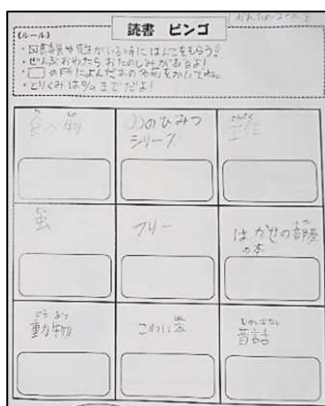 かんたんコース
読書 ビンゴ
《ルール》
・図書委員や先生がいる時にはんこをもらう!
・ぜんぶおわったらおたのしみがあるよ!
・□の中によんだ本の
をかいてね。
・とりくみは
までだよ!
食べ物
〇〇のひみつ
シリーズ
虫
フリー
はかせの部屋
の本
どうぶつ
動物
こわい本
むかしばなし
昔話